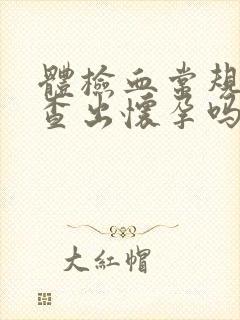 體檢血常規
查出懷孕嗎
大紅帽